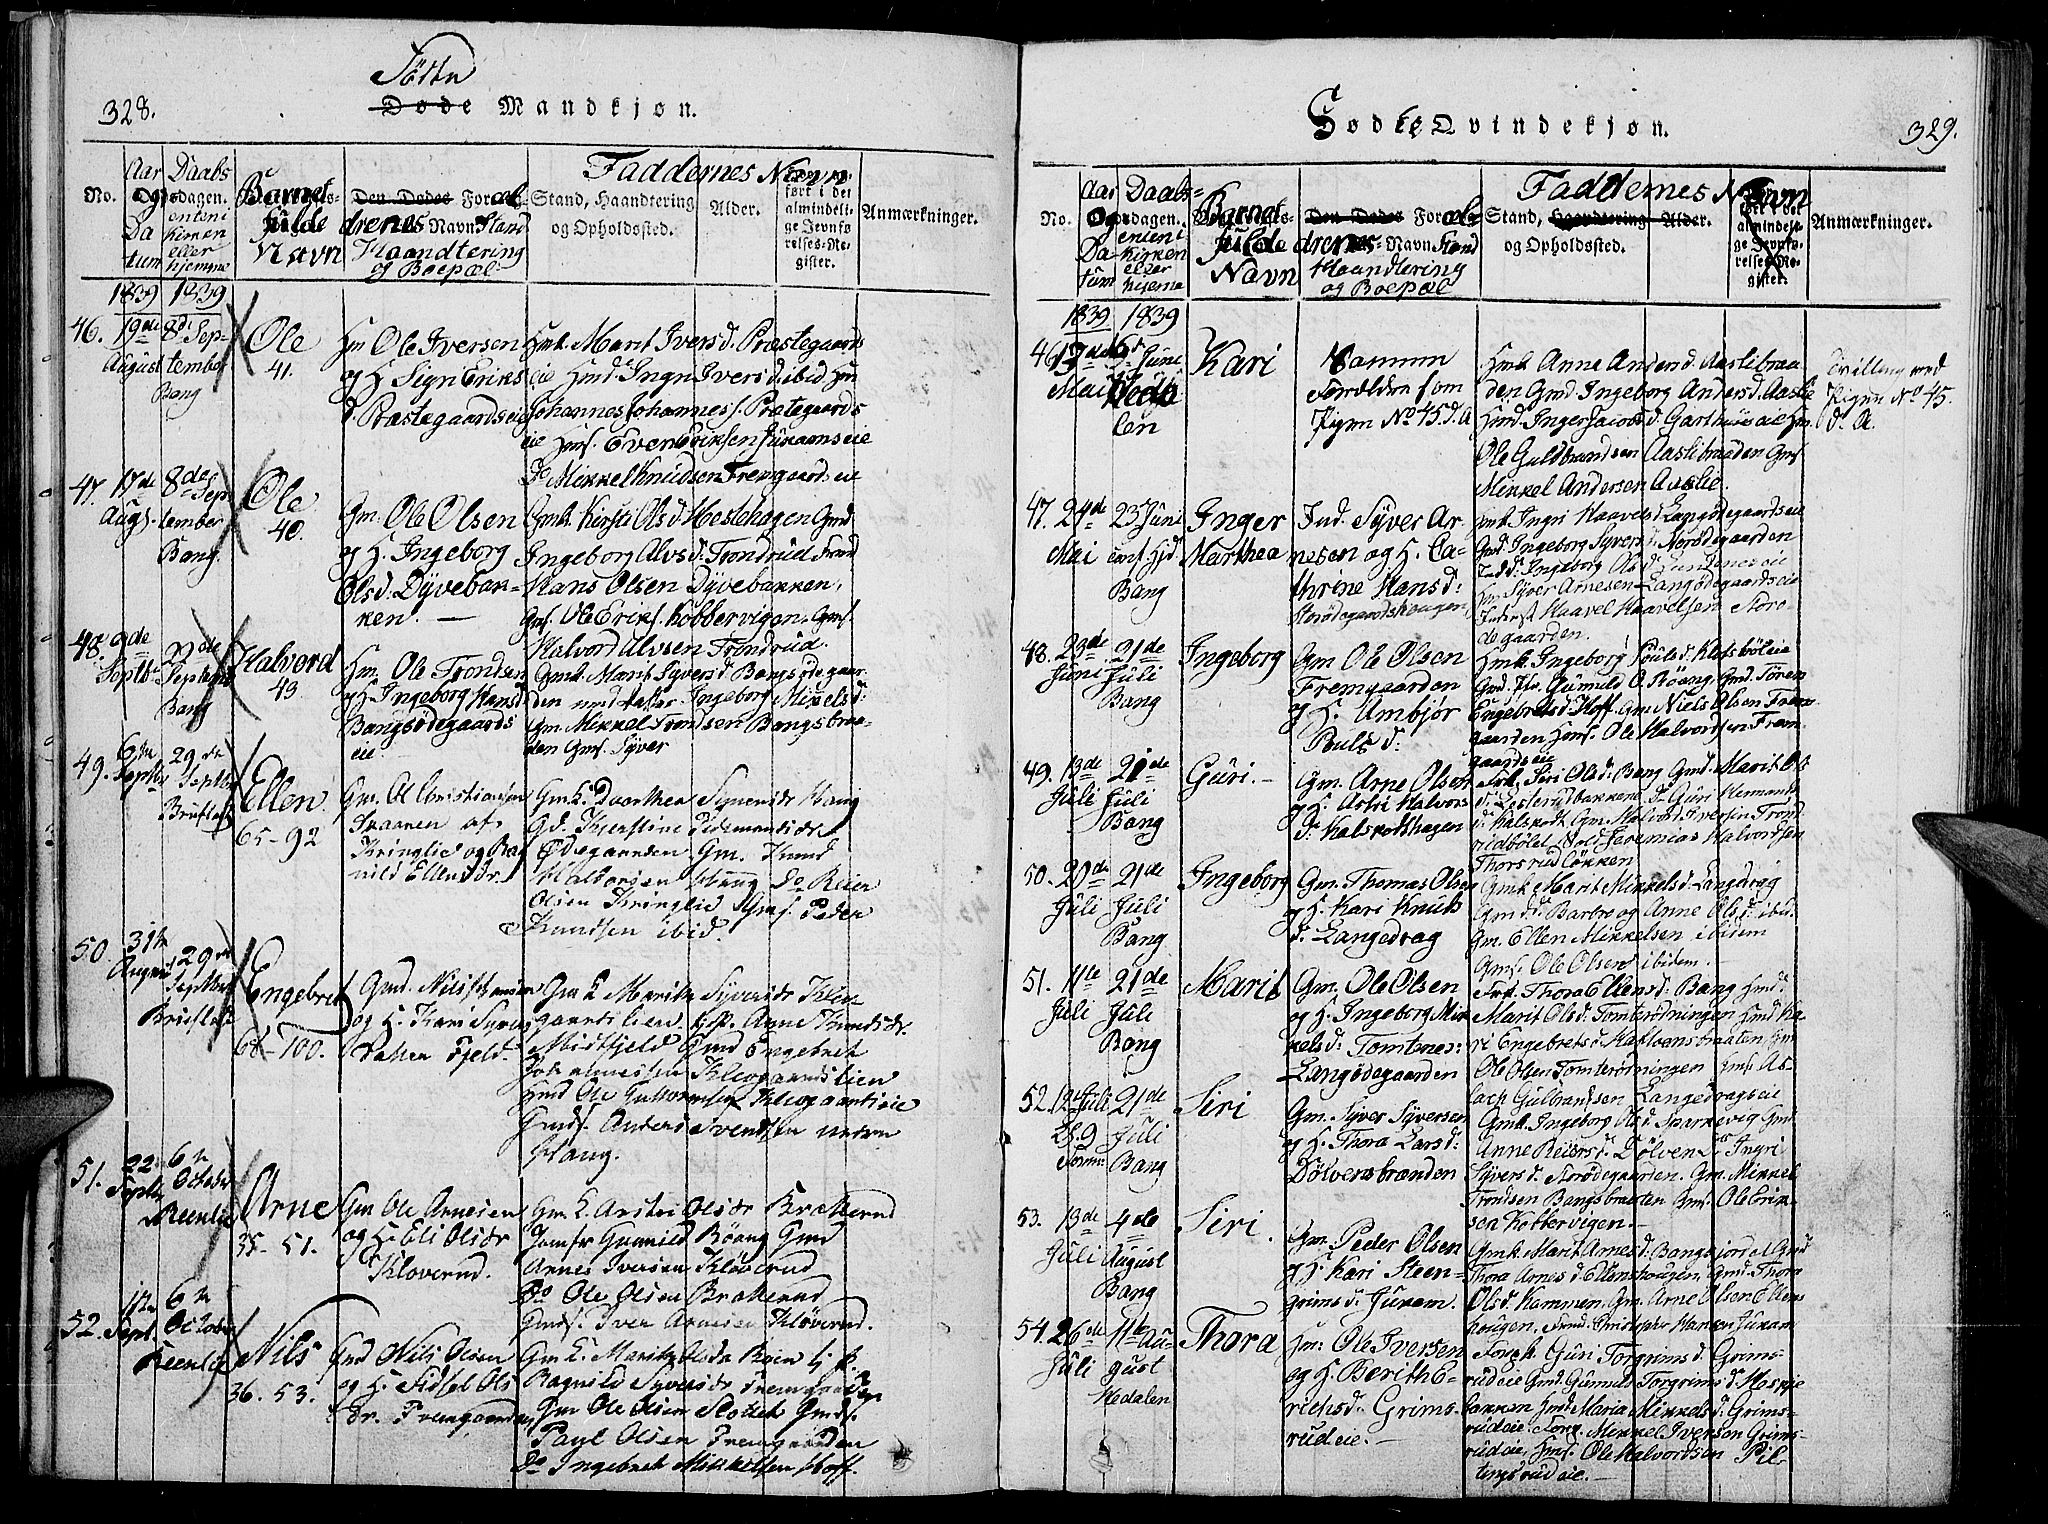 328.
Födte
Døde Mandkjøn.
No.
Aar og Datum
Daabsdagen enten i kirken eller hjemme
Barnets fulde Navn
Den Dødes Forældrenes Navn Stand Haandtering og Boepæl
Faddernes Navn
Stand, Haandtering og Opholdssted.
Alder.
Anmærkninger.
1839 1839
46. 19de August 8de September Bang
Ole 41.
Hm Ole Iversen
og H. Sign Eriks
d. Præstegaardseie
Hmk. Marit Ivers d. Præstegaards
eie Hmd. Ingri Ivers d. ibid Hm
Johannes Johannes f. Prætegaards
eie Hmf. Even Eriksen Juramseie
Do Mikkel Knudsen Fremgaard eie
47. 17de Augs. 8de September Bang.
Ole 40.
Gm. Ole Olsen
og H. Ingeborg
Ols d. Dyvebak-
ken.
Gmk. Kirsti Ols d. Hestehagen Gmd
Ingeborg Alvs d. Trondrud. Frend
Hans Olsen Dyvebakken,
Gmf. Ole Eriks. Kobbervigen. Gmf.
Halvord Alvsen Trondrud.
48. 2de Septb. 29de Septemb Bang
Halvord 43
Hm. Ole Trondsen
og H. Ingeborg Hans d
Bangsödegaards
eie.
Gmk. Marit Syvers d. Bangsödegaar
den Ingeborg Mikels d:
Gm. Mikkel Trondsen Bangsbraa-
den Gmf. Syver
49. 6te Septbr 29de Septbr Bruflat
Ellen 65-92
Gm. Ol Christiansen
Skaaren af
Kringlie og Rag
nild Ellensdr.
Gm K. Dorthea Symensdr Haug
Gd. Kjerstine Pedersdr
Ødegaarden Gm. Knud
Halvorsen Haug Do Reier
Olsen Kringlie Gmf. Peder
Knudsen ibid.
50. 31te August 29de Septbr Bruflat
Engebret 68-100.
Gmd. Nils Hansen
og H. Kari Syvers
datter Fjeld.
Gm K Marithe Syversdr Klev
gaardslien. Anne Knudsdr.
Midtfjeld Gmd Engebret
Johannessen Klevgaardslien
Hmd Ole Klevgaardseie
Gmdf. Anders Svendsen nedre
Haug.
51. 22de Septbr 6te October Reenlie
Arne 35-51.
Gm Ole Arnesen
og H. Eli Olsdr
Kløverud.
Gm. K. Astri Olsdr Brækerud
Jomfr Gunild Röang Gmd
Arnes Iversen Kløverud
Do Ole Olsen Brækerud
Gmdf. Iver Arnesen Kløverud.
52. 11te Sept. 6te October Reenlie
Nils 36. 53.
Gmd Nils Olsen
og H. Sidsel Ols
dr. Fremgaarden
Gm K. Marithe Olsdr Reien
Ragnild Syversdr Fremgaarden
Gm Ole Olsen Slottet Gmdf.
Paul Olsen Fremgaarden
Do Ingebret Mikkelsen Hoff.
Födte Qvindekjøn.
329.
No.
Aar og Datum
Daabsdagen enten i kirken eller hjemme
Barnets fulde Navn
Den Dødes Forældrenes Navn Stand Haandtering og Boepæl
Faddernes Navn
Stand, Haandtering og Opholdssted.
Alder.
Anmærkninger.
1839 1839
46. 19de Mai Juni Hedalen
Kari
Samme
Forældre som
Pigen No 45. d. A
Hmk Anne Anders d. Aaslibraa
den Gmd Ingeborg Anders d. Aaslie
Hmd. Inger Jacobs d. Garthuseie Hm.
Ole Guldbrandsen Aaslibraaden Gmf
Mikkel Andersen Aaslie.
Tvilling med
Pigen No 45.
d. A.
47. 24de Mai 23 Juni Bang
Inger Marthea
Ind. Syver Ar
nesen og H. Ca-
thrine Hans d:
Storödegaardshougen,
Hmk. Ingri Haavels d. Langödegaardseie
Gmd. Ingeborg Syvers d. Norödegaarden
Hm Syver Arnesen Langödegaardseie
Inderst Haavel Haavelsen Storö-
degaarden.
48. 23de Juni 21de Juli Bang
Ingeborg
Gm Ole Olsen
Fremgaarden
og H. Ambjör
Pouls d:
Hmk. Ingeborg Pouls d. Klosböleie
Gmd. Gunild O. Röang, Gmd. Jören
Engebrets d. Hoff. Gm Niels Olsen Frem-
gaarden Hmf. Ole Halvordsen Frem-
gaardseie
49. 13de Juli 21de Juli Bang
Guri.
Gm. Arne Olsen
og H. Astri Halvors
d. Kalskodshagen
Siri Ols d. Bang Gmd. Marit Ols
d. bakkene. Do Guri Hermands
d. Kalskodt. Gm. Halvord Iversen Trond
rudbölet Sold Jeremias Halvordsen
Thorsrudløkken
50. 20de Juli 21de Juli Bang
Ingeborg
Gm. Thomas Olsen
og H. Kari Knuds
d. Langedrag
Gmk. Marit Mikkels d. Langedrag
Gmd d. Barbro og Anne Ols d. ibid.
Gm. Ellen Mikkelsen ibidem
Gmf. Ole Olsen ibidem.
51. 11te Juli 21de Juli Bang
Marit
Gm. Ole Olsen
og H. Ingeborg Mik
kels d: Tomtenes:
Langödegaarden
Frk. Thora Ellens d. Bang Hmd.
Marit Ols d: Tomterödningen Hmd Ka-
ri Engebrets d. Kalvensbraaten, Hm
Ole Olsen Tomterödningen Hmf. As-
lach Gulbrandsen Langedragseie
52. 12te Juli 21de Juli Bang
Siri
Gm. Syver Syversen
og H. Thora Lars d:
Dölvensbraaden
Gmk. Ingeborg Ols d. Sparkevig Gmd
Anne Reiers d. Dölven Do Ingri
Syvers d. Norödegaarden. Gm. Mikkel
Trondsen Bangsbraaten Gmf. Ole Erik-
sen Kobbervigen.
53. 13de Juli 4de August Bang
Siri.
Gm. Peder Olsen
og H. Kari Steen-
grims d. Juram.
Gmk. Marit Arnes d. Bangsjordet Gmd
Thora Arnes d. Ellenshougen, Gmd. Thora
Ols d. Kammen. Gm. Arne Olsen Ellens
hougen. Hansen Juram
54. 26de Juli 11te August Hedalen
Thora
Hm. Ole Iversen
og H. Berith E-
richs d. Grims-
rudeie.
Guri Torgrims d. Grims-
rudeie Gmd. Gunild Torgrims d. Mæhje
bakken Gmd Maria Mikkels d. Grims-
rudeie, Mikkel Iversen Grims-
rudeie, Hmf. Ole Halvordsen Pil
tingsrudeie.